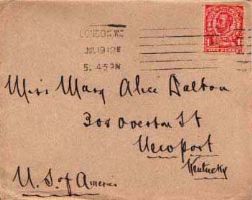 LONDON. W.
JUL 19 12 E
5. 45 PM
Miss Mary Alice Dalton
308 Overton St
Newport
Kentucky
U. S. of America